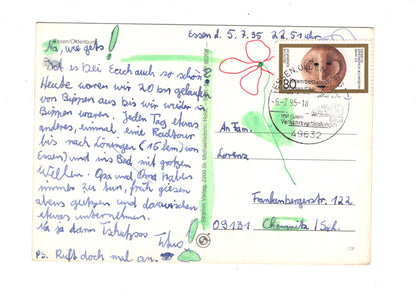 Essen d. 5.7.95 22.51 Uhr
Essen/Oldenburg
Na, wie gehts!
Ist es bei Euch auch so schön?
Heute waren wir 20 km gelaufen
von Bippen aus bis wir wieder in
Bippen waren. Jeden Tag etwas
anderes, einmal eine Radtour
bis nach Löningen (15 km) von
Essen) und ins Bad mit großen
Wellen. Opa und Oma haben
immer zu tun, früh gießen
abens und dazwischen
etwas unternehmen.
Na ja dann Tschüssi
Titus!
PS. Ruft doch mal an.
80
ESSEN, OLDB
-6.-7.95-18
mit guten
Verkehrsverbindungen
49632
An Fam.
Lorenz
Frankenbergerstr. 122
09131 Chemnitz / Sch.